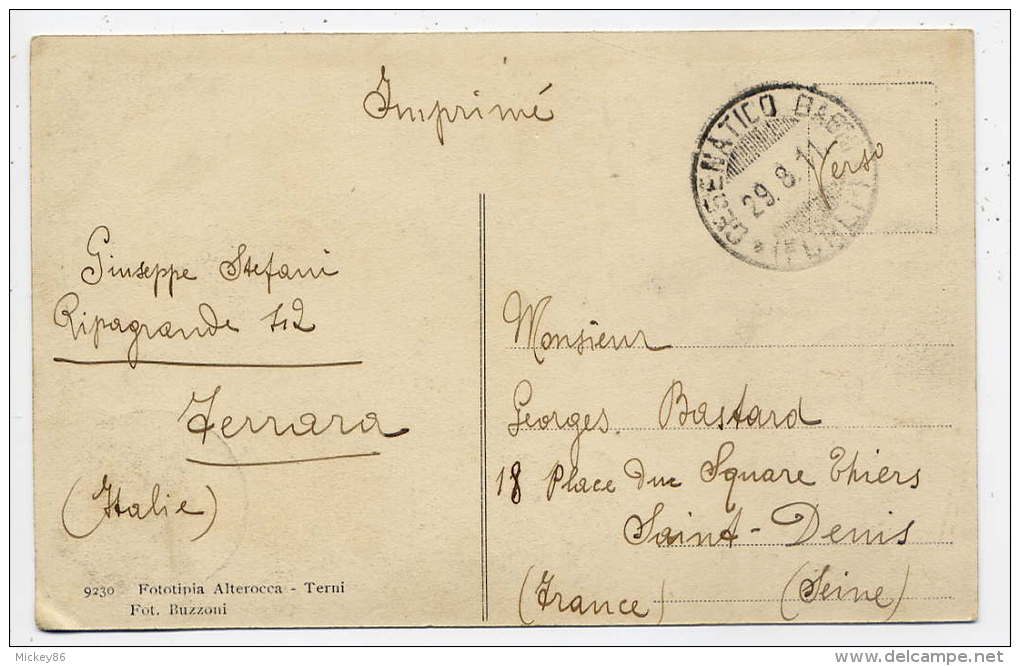 Imprimé
CESENATICO BAGNI
29.8.11
(FORLÌ)
Verso
Giuseppe Stefani
Ripagrande 112
Ferrara
(Italie)
Monsieur
Georges Bastard
18 Place du Square Thiers
Saint-Denis
(Seine)
(France)
9230 Fototipia Alterocca - Terni
Fot. Buzzoni
Mickey86
www.delcampe.net